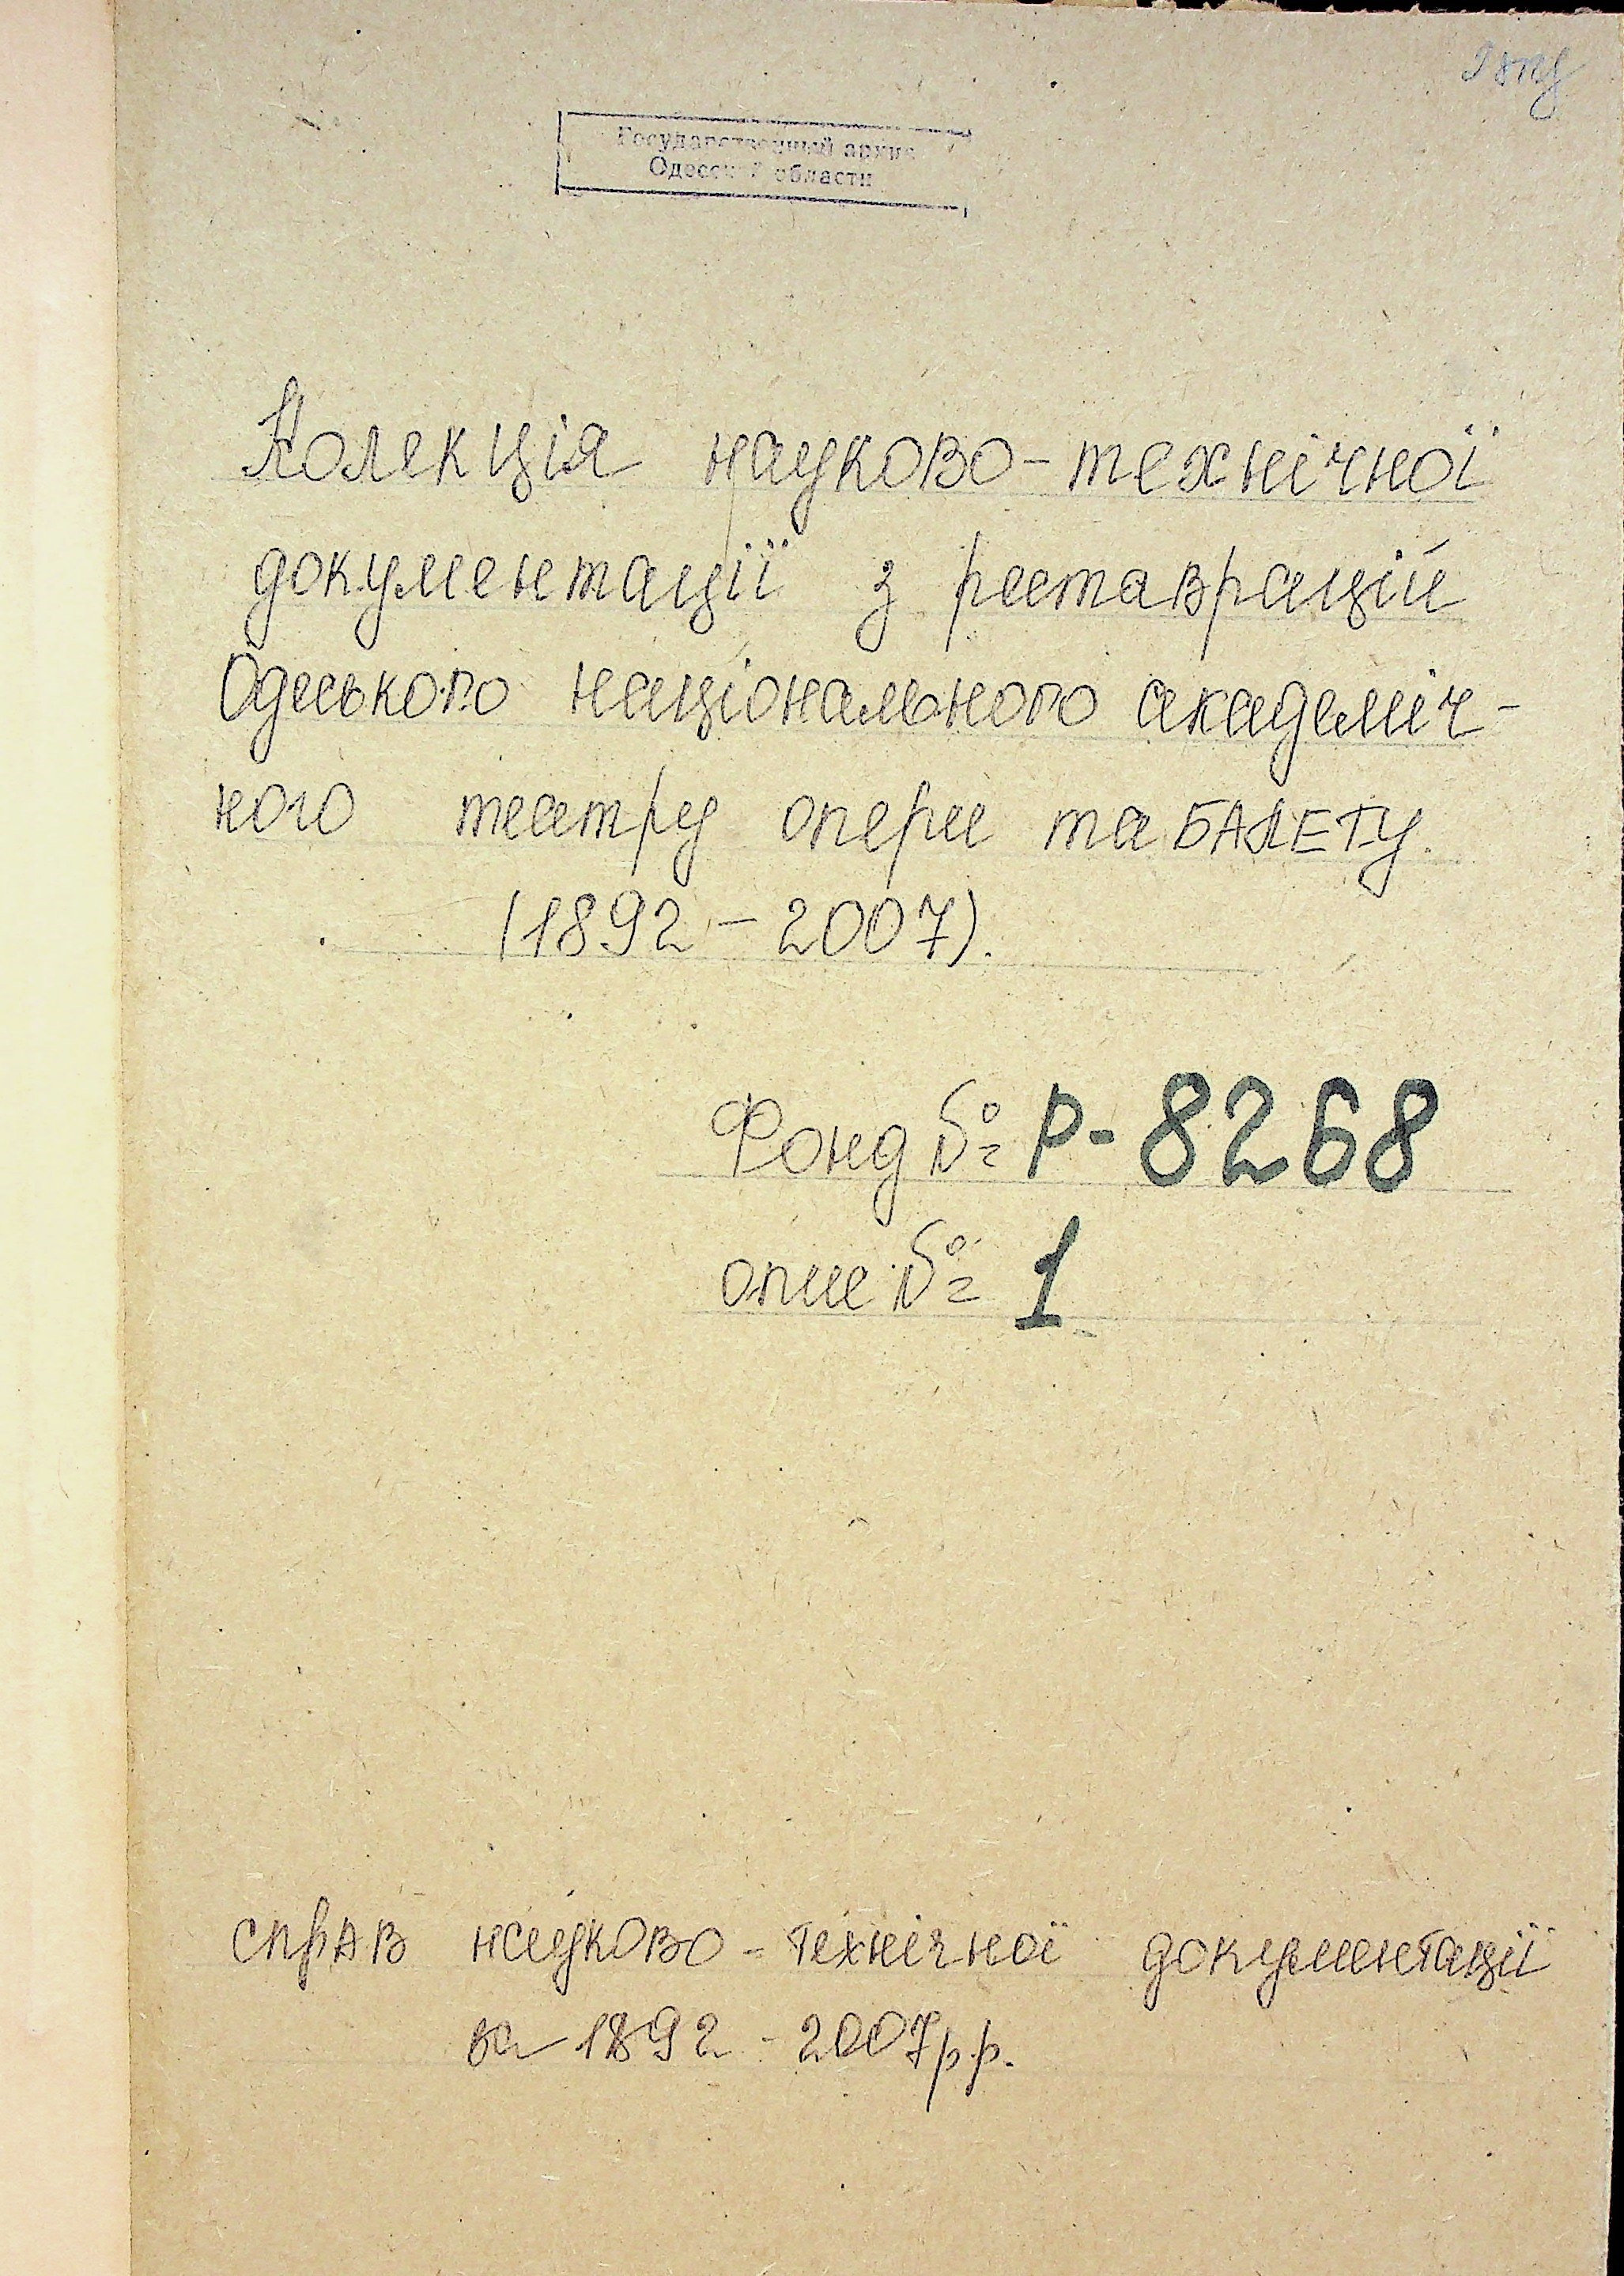 Государственный архив
Одесской области
Колекція науково-технічної
документації з реставрацій
Одеського національного академіч-
ного театру опери та БАЛЕТУ.
(1892 - 2007).
Фонд № Р-8268
опис № 1
справ науково-технічної документації
за 1892 - 2007 р.р.